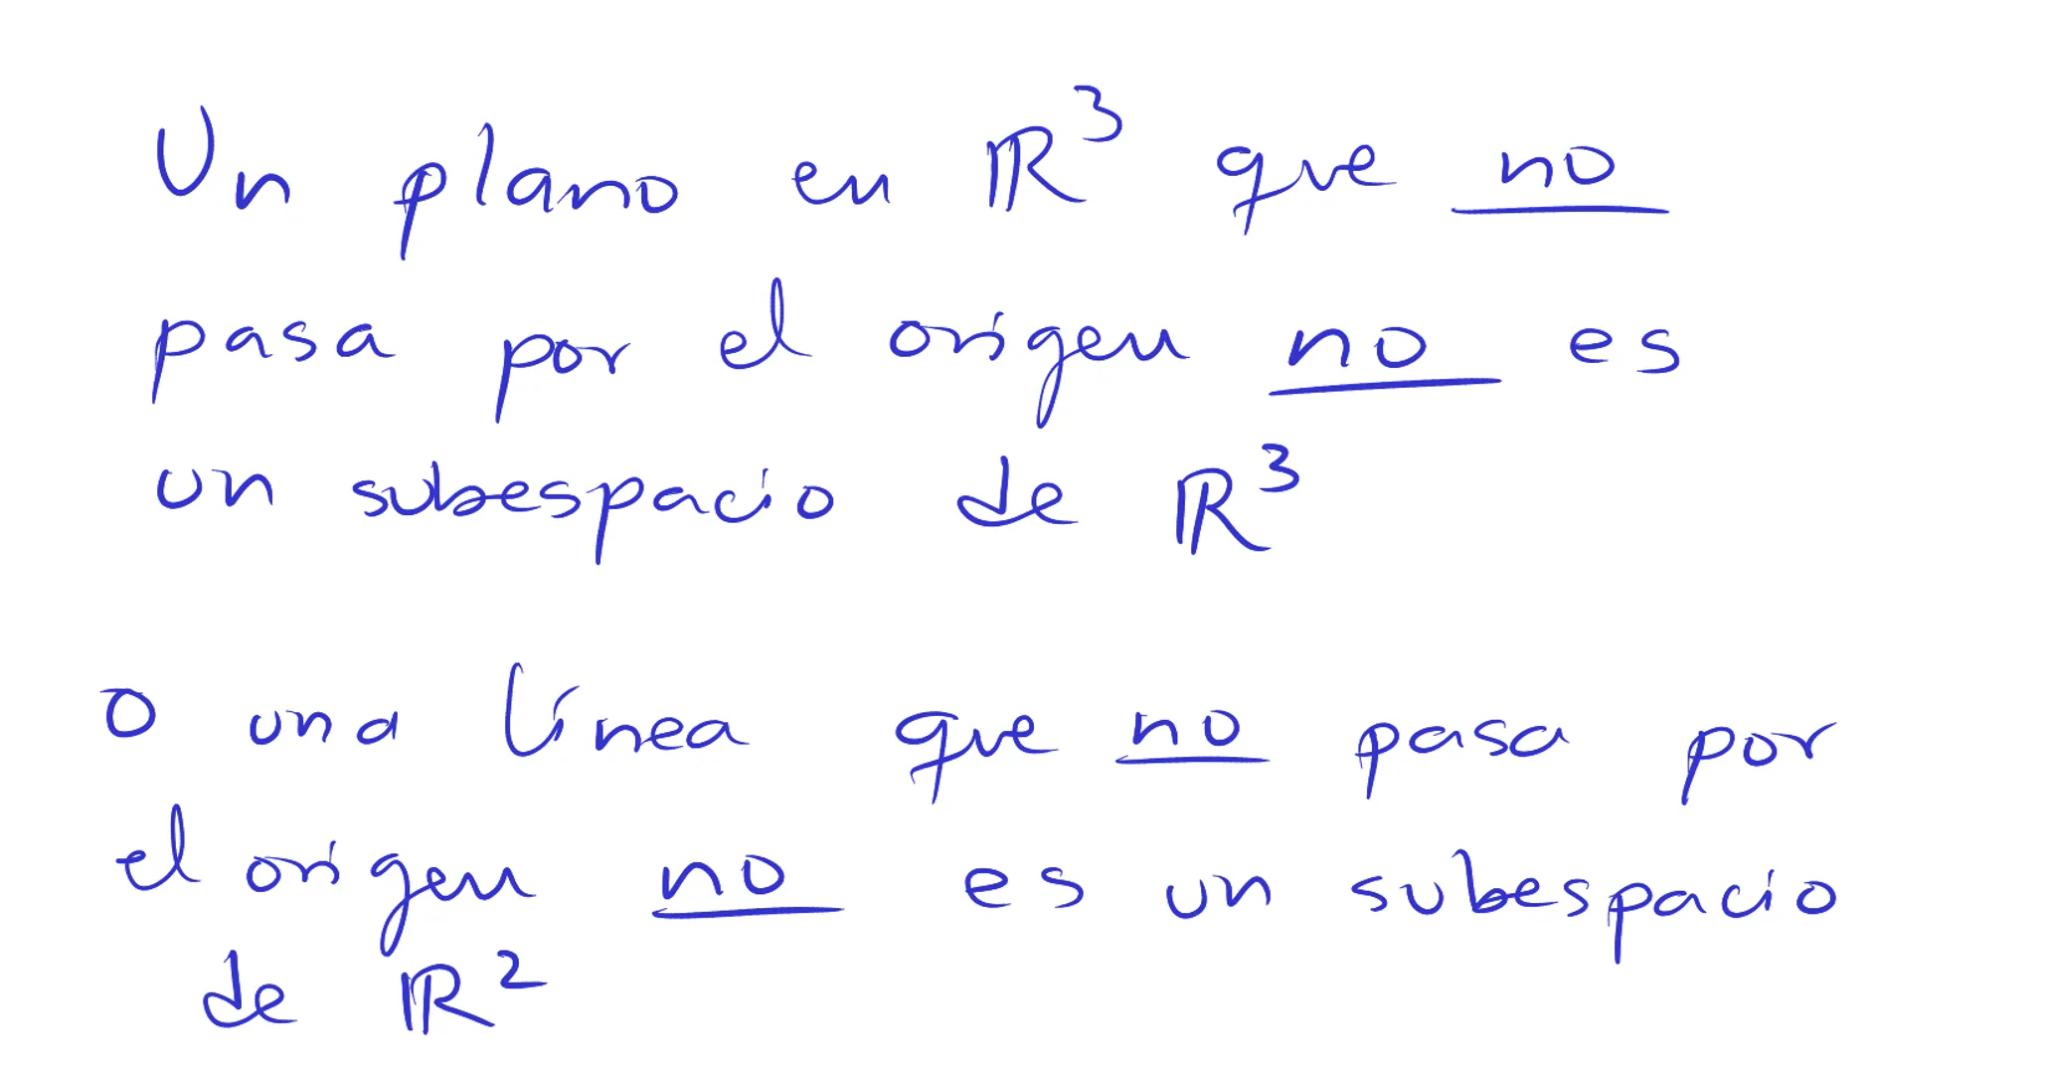 Un plano en ℝ³ que no
pasa por el origen no es
un subespacio de ℝ³
o una línea que no pasa por
el origen no es un subespacio
de ℝ²